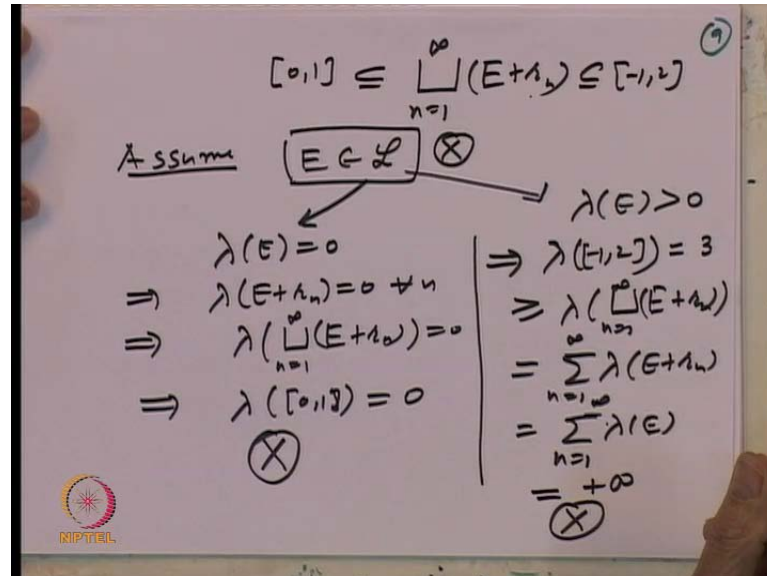 9
[0,1] ⊆ ⨆_{n=1}^{∞} (E+r_n) ⊆ [-1,2]
Assume E ∈ 𝓛 ⓧ
λ(E)=0
⇒ λ(E+r_n)=0 ∀ n
⇒ λ(⨆_{n=1}^{∞}(E+r_n))=0
⇒ λ([0,1])=0
ⓧ
λ(E)>0
⇒ λ([-1,2])=3
≥ λ(⨆_{n=1}^{∞}(E+r_n))
= ∑_{n=1}^{∞} λ(E+r_n)
= ∑_{n=1}^{∞} λ(E)
= +∞
ⓧ
NPTEL